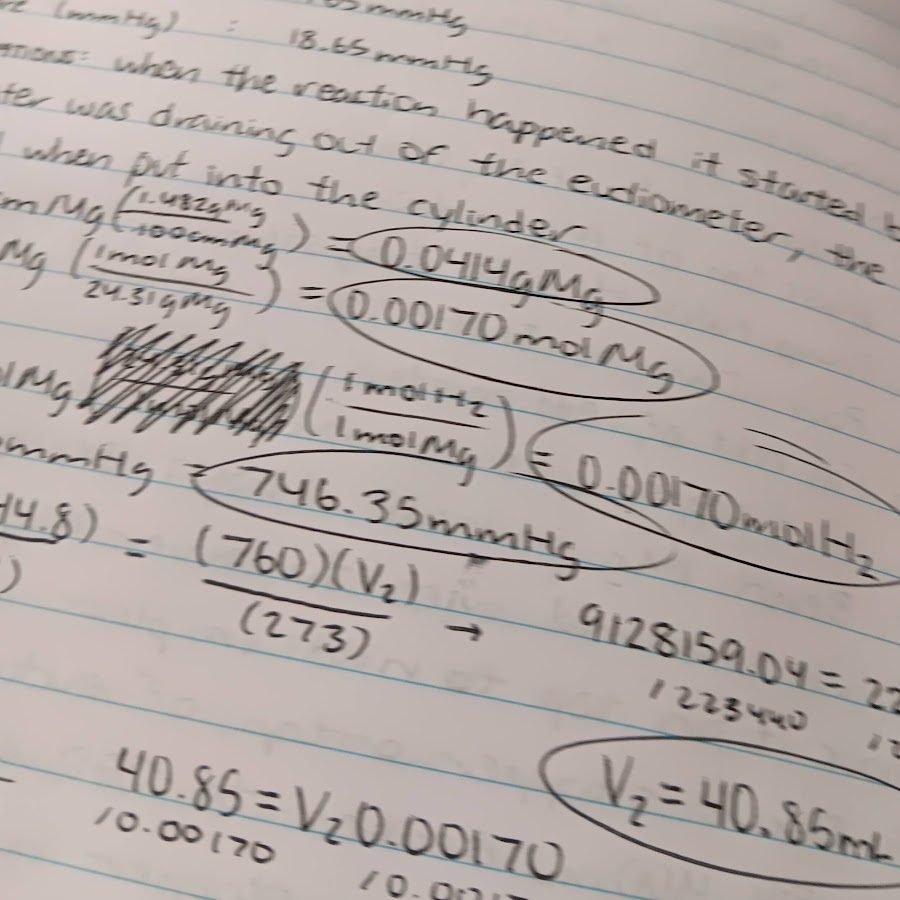 mmHg
(mmHg) : 18.65mmHg
when the reaction happened it started
was draining out of the eudiometer, the
when put into the cylinder
Mg (1.482gMg / 100cmMg) = 0.0414gMg
Mg (1molMg / 24.31gMg) = 0.00170molMg
Mg (1molH₂ / 1molMg) = 0.00170molH₂
mmHg = 746.35mmHg
44.8) = (760)(V₂) / (273) → 9128159.04 = 22
/223440
40.85 = V₂0.00170 V₂ = 40.85mL
/0.00170